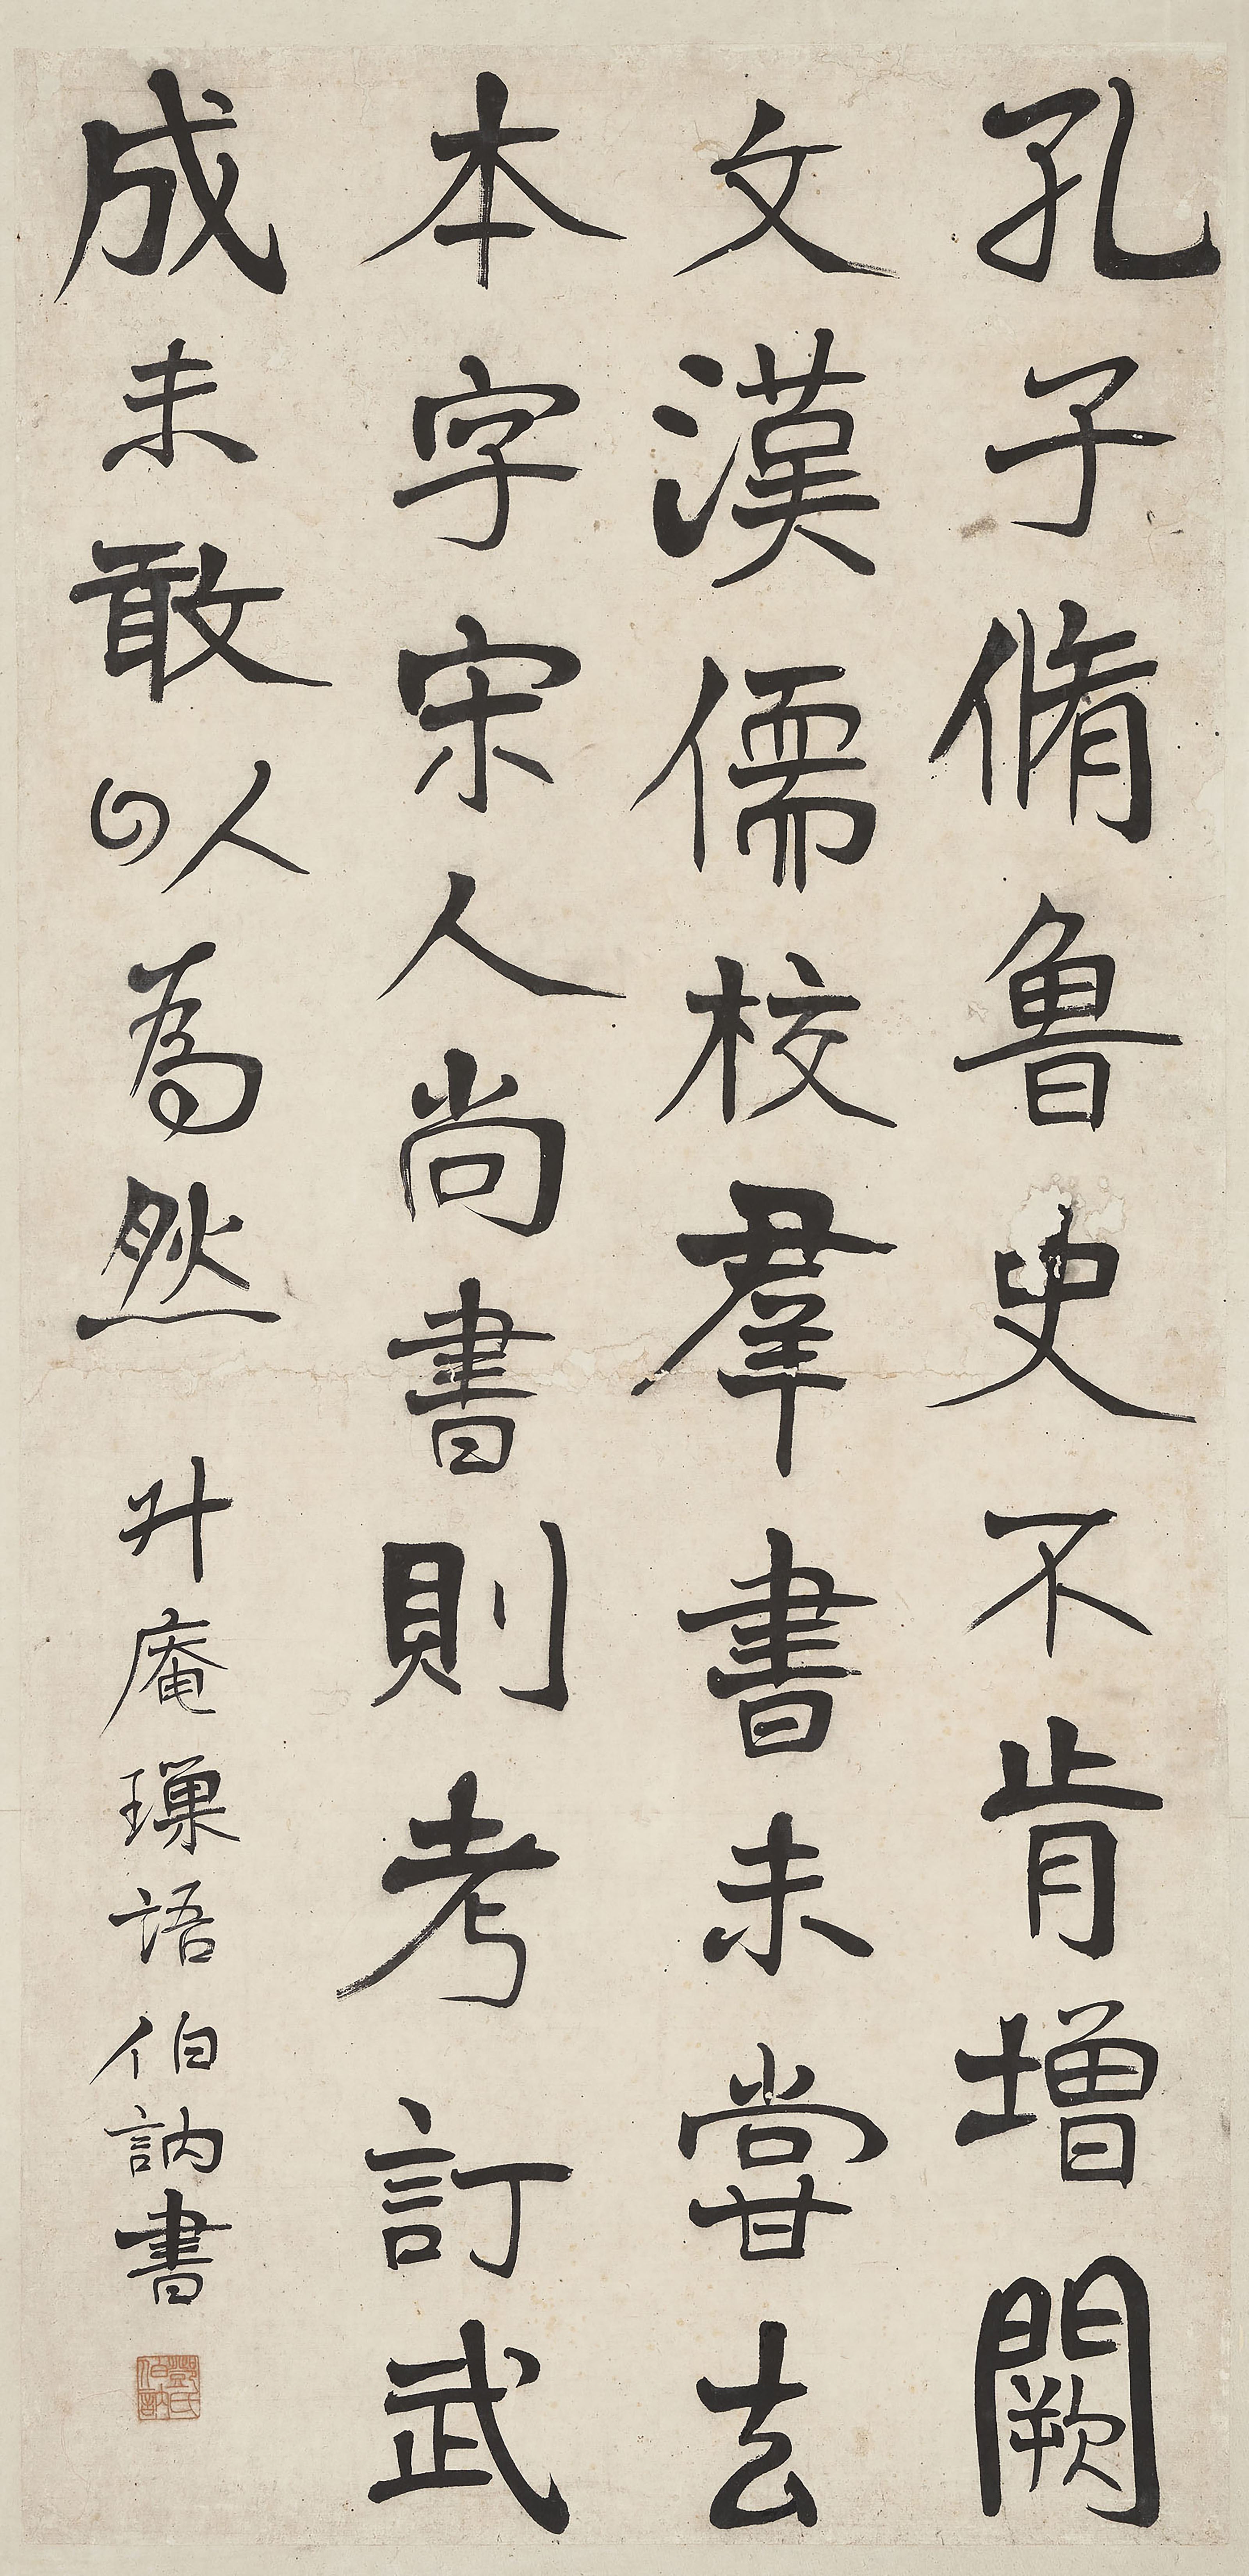 孔子脩魯史不肯增闕
文漢儒校羣書未甞去
本字宋人尚書則考訂武
成未敢以為然 升庵璅語伯訥書
鄧氏伯訥